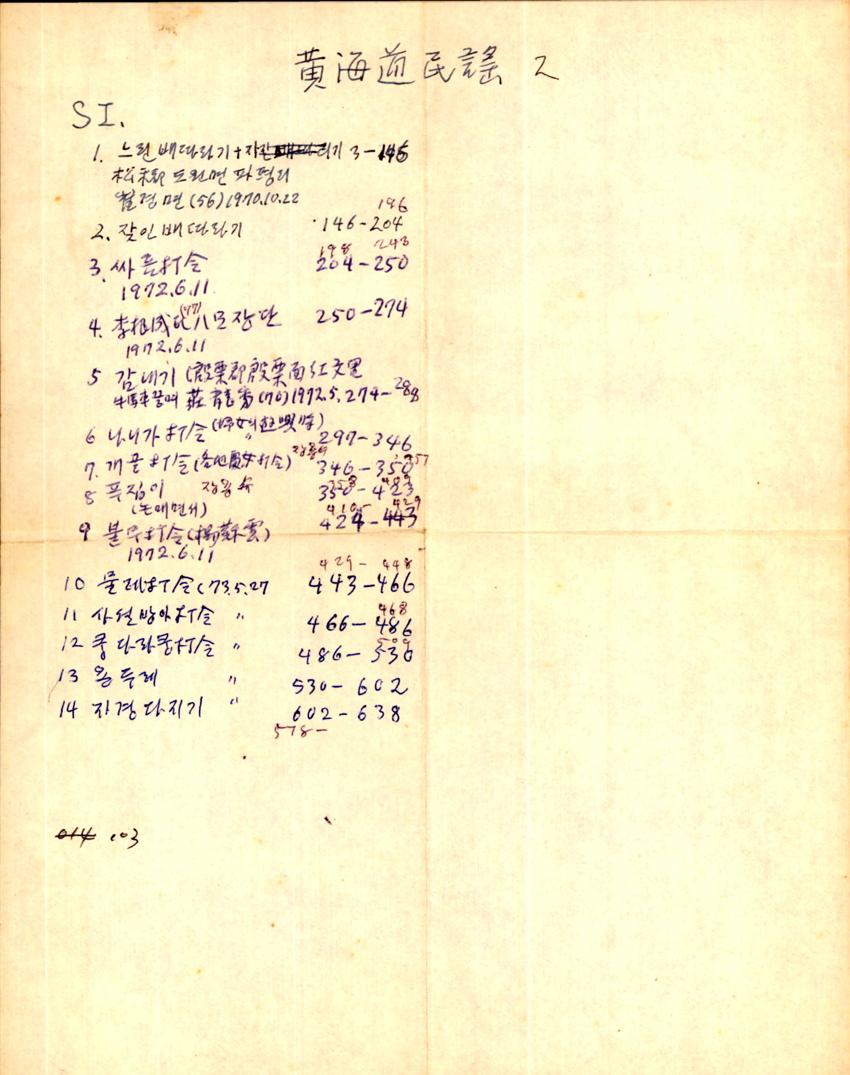 黃海道民謠 2
SI.
1. 느린배따라기+자진 기 3-146
松禾郡 도원면 파평리
(56) 1970.10.22
196
2. 잦인배따라기 146-204
198 243
3. 싸름打令 204-250
1972.6.11
4. 李根成氏(77)八모장단 250-274
1972.6.11
5 감내기 (殷栗郡殷栗面紅文里
(70) 1972.5. 274-288
6 나니가打令 297-346
7. 개골打令 346-350
8 푸집이 장용수 350-423
(논매면서)
9 불무打令(楊蘇雲) 424-443
1972.6.11
429- 448
10 물레打令 (73.5.27 443-466
468
11 사설방아打令 〃 466-486
509
12 쿵다라쿵打令 〃 486-530
13 용두레 〃 530-602
14 지경다지기 〃 602-638
578-
014 103